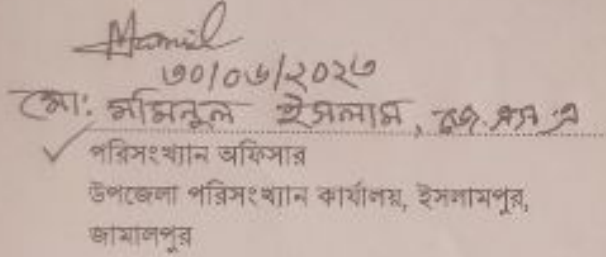 ৩০/০৬/২০২৩
মো: মমিনুল ইসলাম, জে. এস. এ
পরিসংখ্যান অফিসার
উপজেলা পরিসংখ্যান কার্যালয়, ইসলামপুর,
জামালপুর